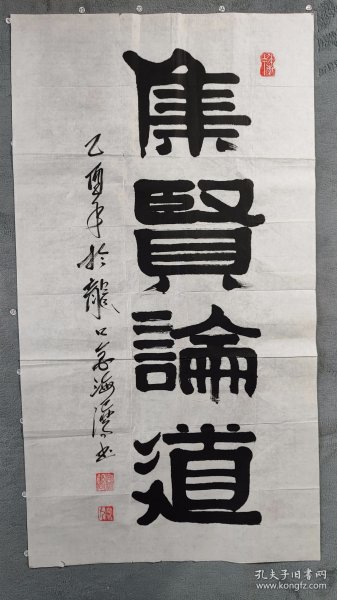 集賢論道
乙酉年於龍口
孔夫子旧书网
www.kongfz.com